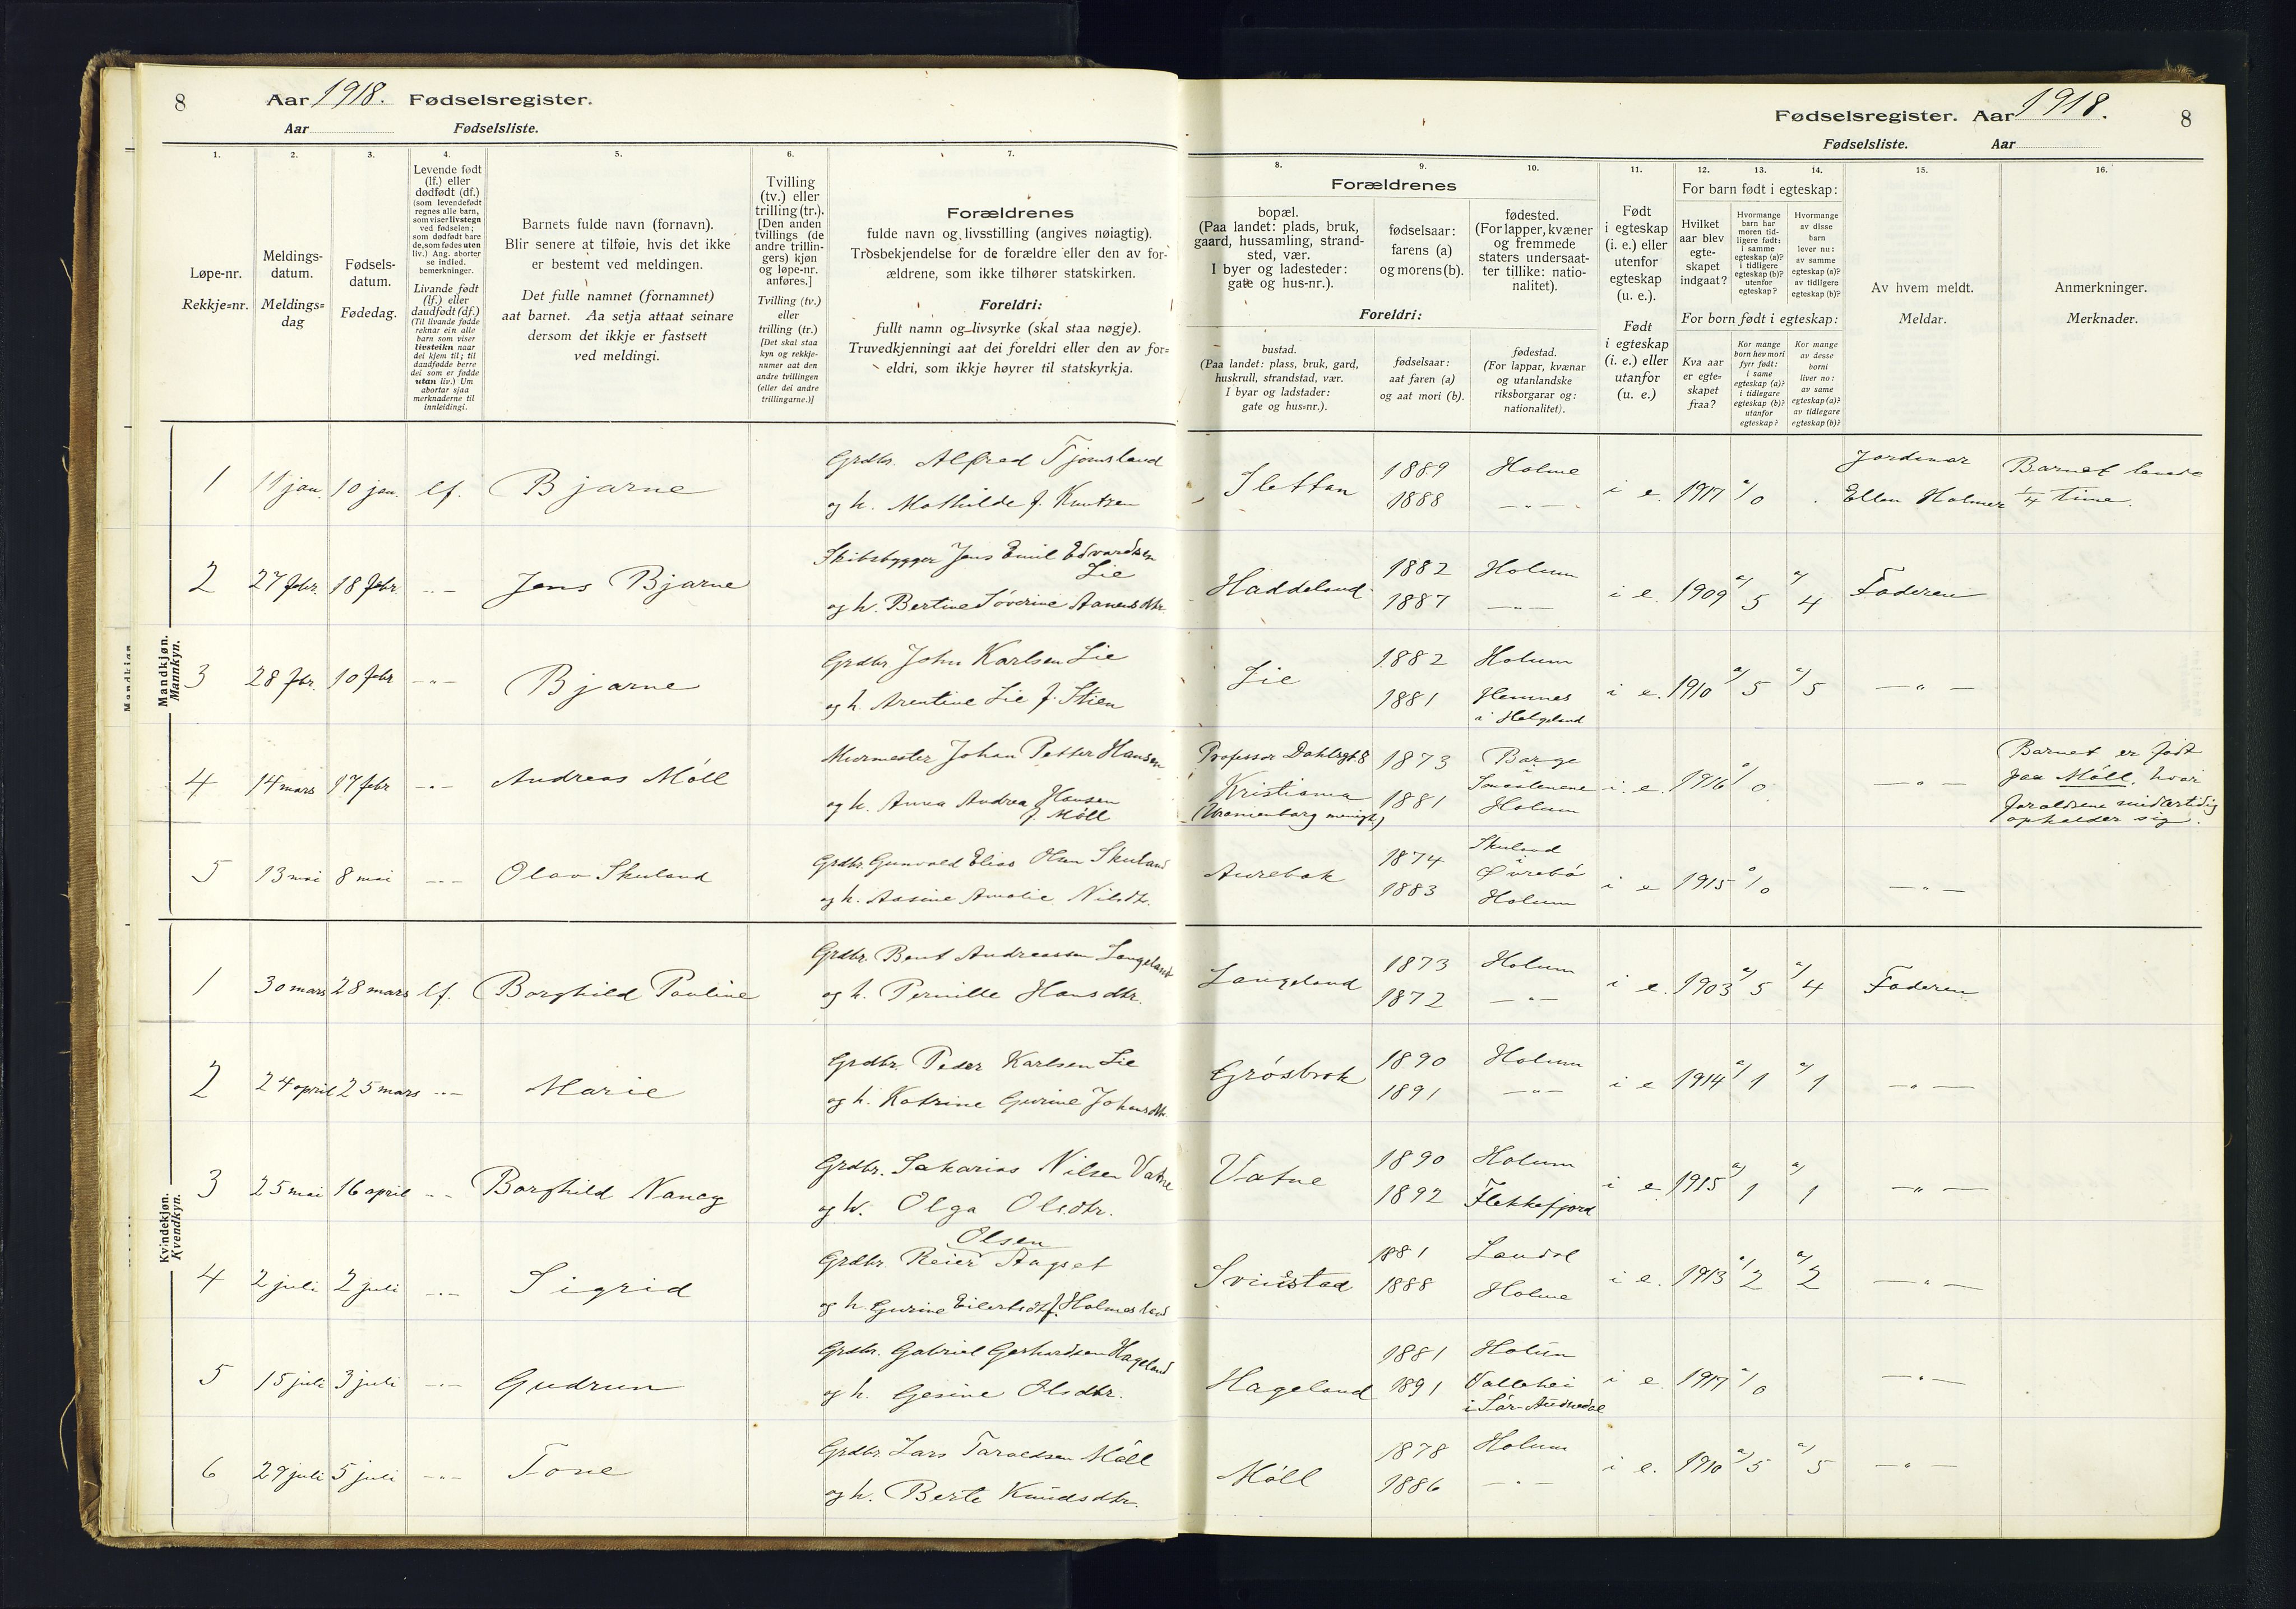 8 Aar 1918. Fødselsregister.
Aar Fødselsliste.
1. 2. 3. 4. 5. 6. 7.
Løpe-nr.
Rekkje=nr.
Meldings-
datum.
Meldings=
dag
Fødsels-
datum.
Fødedag.
Levende født
(lf.) eller
dødfødt (df.)
(som levendefødt
regnes alle barn,
som viser livstegn
ved fødselen;
som dødfødt bare
de, som fødes uten
liv.) Ang. aborter
se indled.
bemerkninger.
Livande født
(lf.) eller
daudfødt (df.)
(Til livande fødde
reknar ein alle
barn som viser
livsteikn naar
dei kjem til; til
daudfødde berre
dei som er fødde
utan liv.) Um
abortar sjaa
merknaderne til
innleidingi.
Barnets fulde navn (fornavn).
Blir senere at tilføie, hvis det ikke
er bestemt ved meldingen.
Det fulle namnet (fornamnet)
aat barnet. Aa setja attaat seinare
dersom det ikkje er fastsett
ved meldingi.
Tvilling
(tv.) eller
trilling (tr.).
[Den anden
tvillings (de
andre trillin-
gers) kjøn
og løpe-nr.
anføres.]
Tvilling (tv.)
eller
trilling (tr.)
[Det skal staa
kyn og rekkje-
numer aat den
andre tvillingen
(eller dei andre
trillingarne.)]
Forældrenes
fulde navn og livsstilling (angives nøiagtig).
Trosbekjendelse for de forældre eller den av for-
ældrene, som ikke tilhører statskirken.
Foreldri:
fullt namn og livsyrke (skal staa nøgje).
Truvedkjenningi aat dei foreldri eller den av for=
eldri, som ikkje høyrer til statskyrkja.
Mandkjøn.
Mannkyn.
1 11 jan. 10 jan. lf. Bjarne
Grdbr. Alfred Tjomsland
og h. Mathilde f. Knutsen
2 27 febr. 18 febr. -"- Jens Bjarne
Skibsbygger Jens Emil Edvardsen
Lie
og h. Bertine Søverine Aanensdtr.
3 28 fbr. 10 febr -"- Bjarne
Grdbr John Karlsen Lie
og h. Arentine Lie f. Stien
4 14 mars 17 febr -"- Andreas Móll
Murmester Johan Petter Hansen
og h. Anna Andrea Hansen
f. Móll
5 13 mai 8 mai -"- Olav Skuland
Grdbr Gunvald Elias Olsen Skuland
og h. Aasine Amalie Nilsdtr.
Kvindekjøn.
Kvendkyn.
1 30 mars 28 mars lf. Borghild Pauline
Grdbr. Bent Andreassen Langeland
og h. Pernille Hansdtr.
2 24 april 25 mars -"- Marie
Grdbr. Peder Karlsen Lie
og h. Katrine Gurine Johansdtr.
3 25 mai 16 april -"- Borghild Nancy
Grdbr. Sakarias Nilsen Vatne
og h. Olga Olsdtr.
4 2 juli 2 juli -"- Sigrid
Olsen
Grdbr. Reier Stapet
og h. Gurine Eilertsdtr f. Holmesland
5 15 juli 3 juli -"- Gudrun
Grdbr. Gabriel Gerhardsen Hageland
og h. Gesine Olsdtr.
6 29 juli 5 juli -"- Tone
Grdbr. Lars Taraldsen Móll
og h. Berte Knudsdtr.
Fødselsregister. Aar 1918. 8
Fødselsliste. Aar
8. 9. 10. 11. 12. 13. 14. 15. 16.
Forældrenes
bopæl.
(Paa landet: plads, bruk,
gaard, hussamling, strand-
sted, vær.
I byer og ladesteder:
gate og hus-nr.).
fødselsaar:
farens (a)
og morens (b).
fødested.
(For lapper, kvæner
og fremmede
staters undersaat-
ter tillike: natio-
nalitet).
Foreldri:
bustad.
(Paa landet: plass, bruk, gard,
huskrull, strandstad, vær.
I byar og ladstader:
gate og hus=nr.).
fødselsaar:
aat faren (a)
og aat mori (b).
fødestad.
(For lappar, kvænar
og utanlandske
riksborgarar og:
nationalitet).
Født
i egteskap
(i. e.) eller
utenfor
egteskap
(u. e.).
Født
i egteskap
(i. e.) eller
utanfor
(u. e.)
For barn født i egteskap:
Hvilket
aar blev
egte-
skapet
indgaat?
Hvormange
barn har
moren tid-
ligere født:
i samme
egteskap (a)?
i tidligere
egteskap (b)?
utenfor
egteskap?
Hvormange
av disse
barn
lever nu:
av samme
egteskap (a)?
av tidligere
egteskap (b)?
For born født i egteskap:
Kva aar
er egte=
skapet
fraa?
Kor mange
born hev mori
fyrr født:
i same
egteskap (a)?
i tidlegare
egteskap (b)?
utanfor
egteskap?
Kor mange
av desse
borni
liver no:
av same
egteskap (a)?
av tidlegare
egteskap (b)?
Av hvem meldt.
Meldar.
Anmerkninger.
Merknader.
Slettan 1889 Holme
1888 -"-
i e. 1917 a/0
Jordmor
Ellen Holmer
Barnet levde
1/4 time.
Haddeland 1882 Holum
1887 -"-
i e. 1909 a/5 a/4 Faderen
Lie 1882 Holum
1881 Hemnes
i Helgeland
i e. 1910 a/5 a/5 -"-
Professor Dahlsgt. 8
Kristiania
(Uranienborg menigh.)
1873 Barge
i
Smaalenene
1881 Holum
i. e. 1916 a/0 -"-
Barnet er født
paa Móll, hvor
foraldrene midlertidig
opholder sig.
Aurebak 1874 Skuland
i
Øvrebó
1883 Holum
i e 1915 a/0 -"-
Langeland 1873 Holum
1872 -"-
i e. 1903 a/5 a/4 Faderen
Grósbrok 1890 Holum
1891 -"-
i e 1914 a/1 a/1 -"-
Vatne 1890 Holum
1892 Flekkefjord
i e 1915 a/1 a/1 -"-
Svinstad 1881 Laudal
1888 Holme
i e. 1913 a/2 a/2 -"-
Hageland 1881 Holum
1891 Vallehei
i Sór-Audnedal
i e. 1917 a/0 -"-
Móll 1878 Holum
1886 -"-
i e. 1910 a/5 a/5 -"-